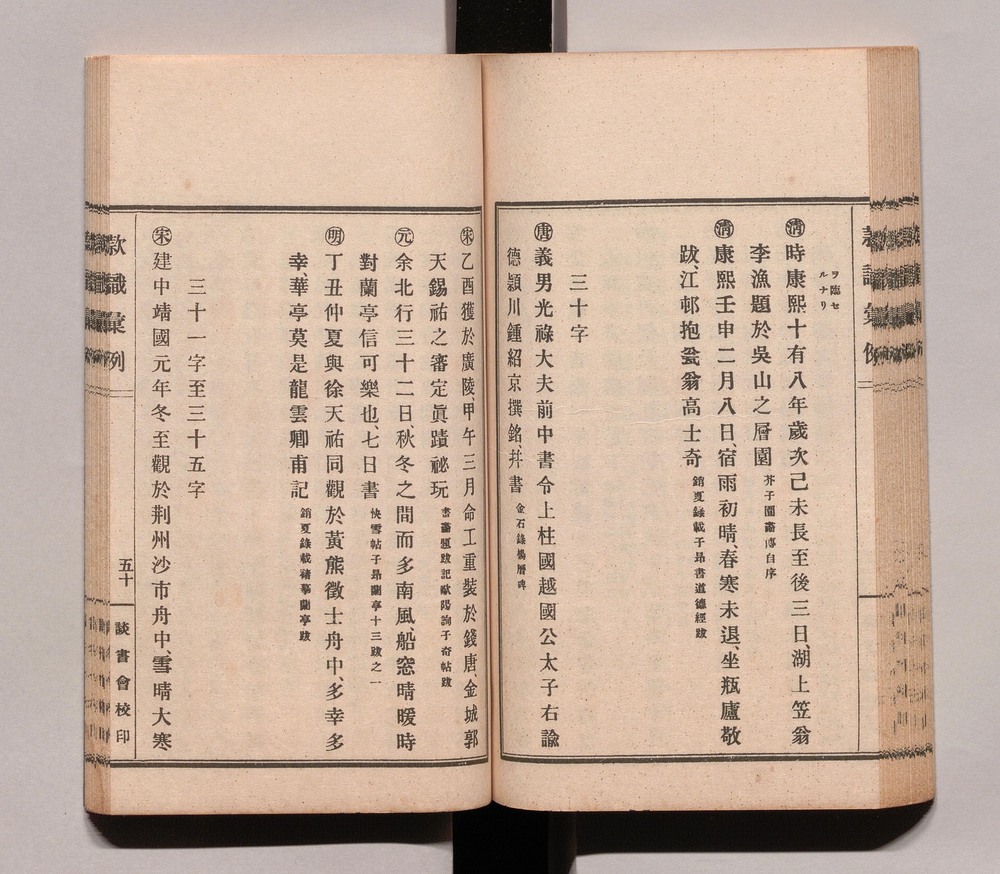 ヲ臨セ
ルナリ
㊂時康熙十有八年歲次己未長至後三日、湖上笠翁
李漁題於吳山之層園 芥子園畵傳自序
淸康熙壬申二月八日、宿雨初晴、春寒未退、坐瓶廬敬
跋、江邨抱瓮翁高士奇 銷夏錄載子昂書道德經跋
三十字
唐義男光祿大夫前中書令上柱國越國公太子右諭
德潁川鍾紹京撰銘、幷書 金石錄楊曆碑
宋乙酉獲於廣陵、甲午三月命工重裝於錢唐、金城郭
天錫祐之審定眞蹟祕玩 書畵題跋記歐陽詢子奇帖跋
元余北行三十二日、秋冬之間而多南風、船窓晴暖、時
對蘭亭信可樂也、七日書 快雪帖子昂蘭亭十三跋之一
明丁丑仲夏與徐天祐同觀於黃熊徵士舟中、多幸多
幸、華亭莫是龍雲卿甫記 銷夏錄載褚摹蘭亭跋
三十一字至三十五字
宋建中靖國元年冬至觀於荆州沙市舟中、雪晴大寒
款識彙例
五十
談書會校印